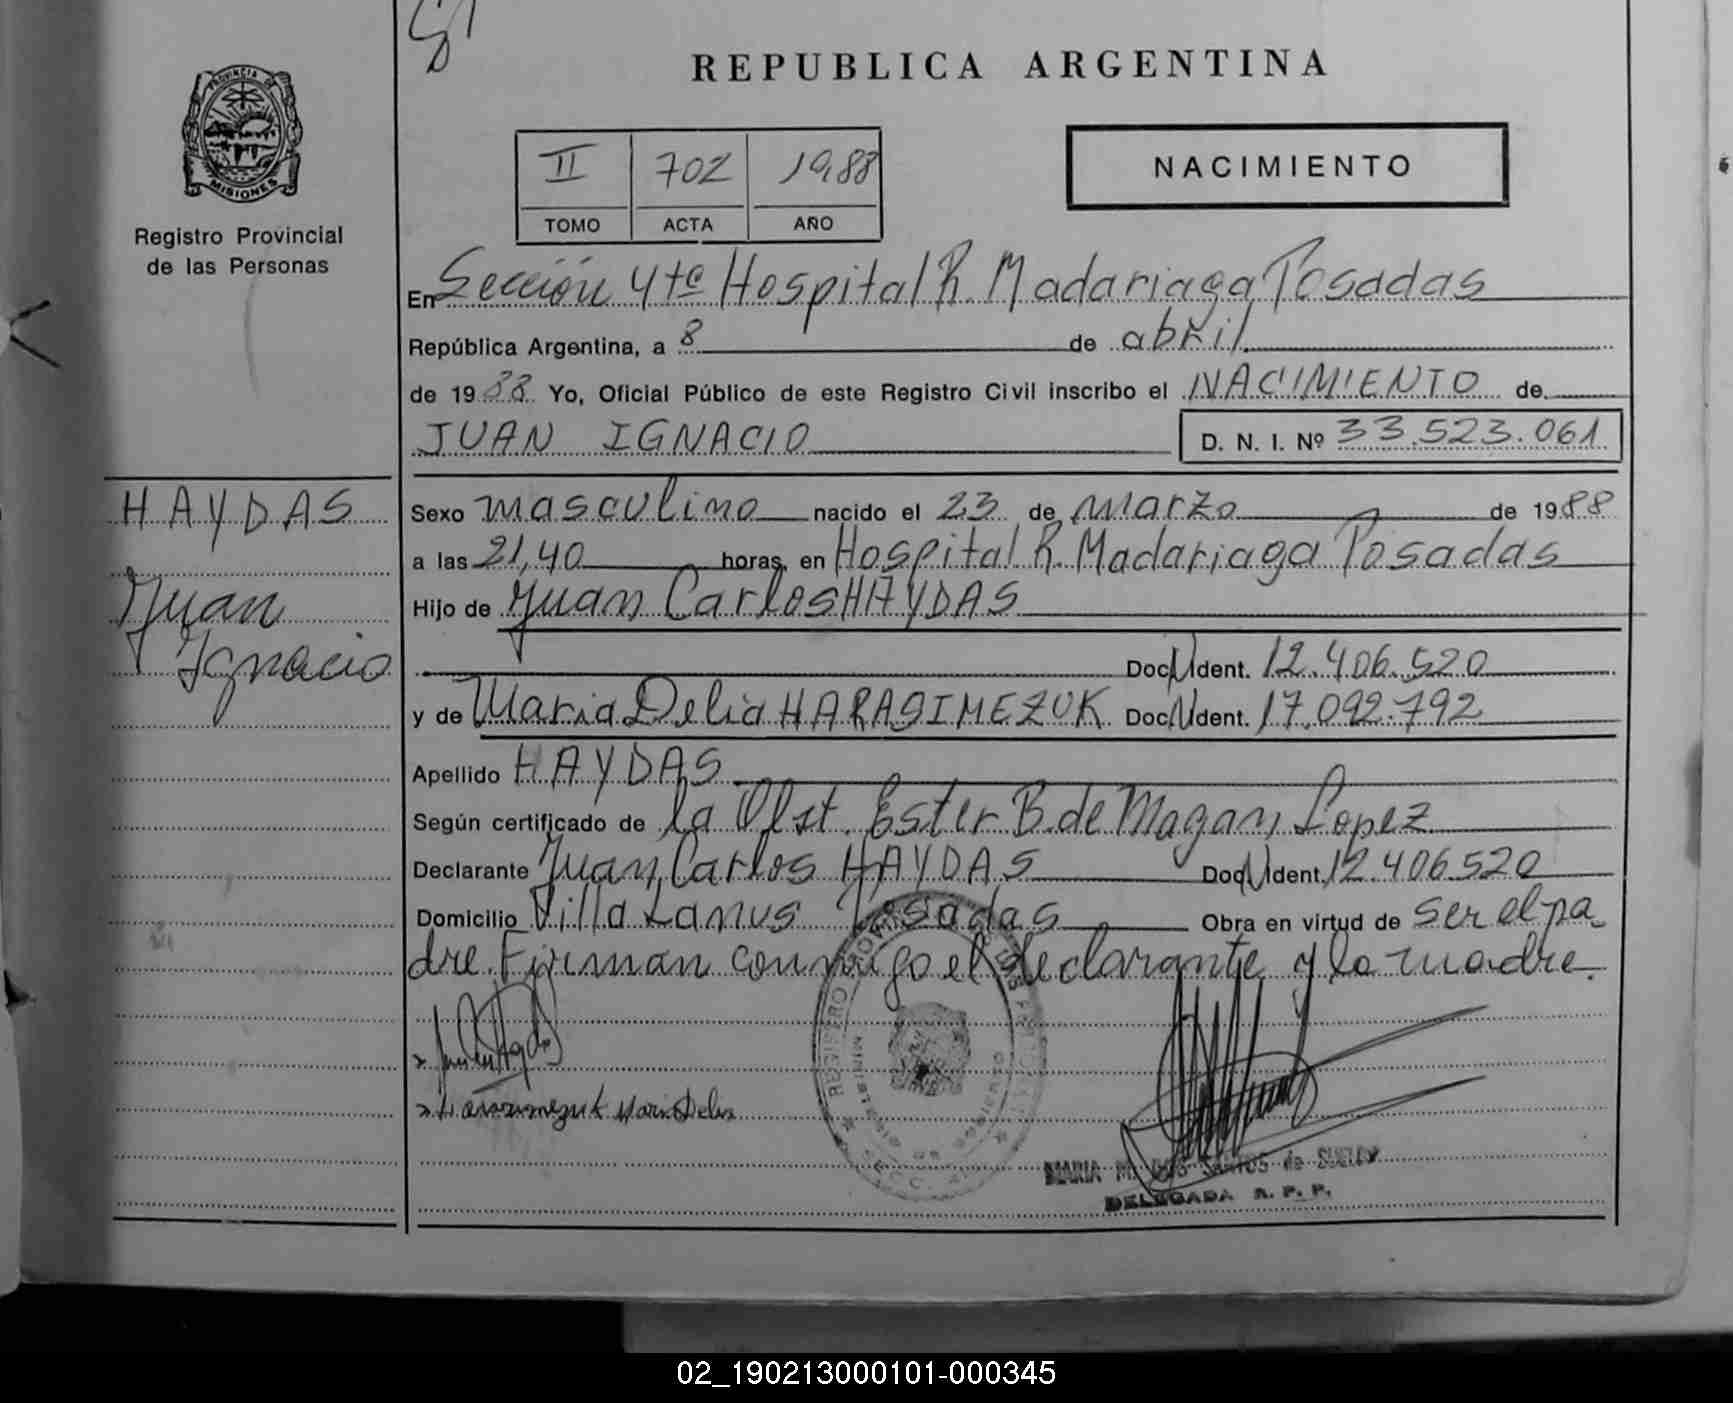 REPUBLICA ARGENTINA
PROVINCIA DE
MISIONES
Registro Provincial
de las Personas
II 702 19,88
TOMO ACTA AÑO
NACIMIENTO
En Sección 4ta Hospital R. Madariaga Posadas
República Argentina, a 8 de abril
de 1988 Yo, Oficial Público de este Registro Civil inscribo el NACIMIENTO de
JUAN IGNACIO D. N. I. Nº 33.523.061
HAYDAS
Juan
Ignacio
Sexo masculino nacido el 23 de marzo de 1988
a las 21,40 horas, en Hospital R. Madariaga Posadas
Hijo de Juan Carlos HAYDAS
Doc. Ident. 12.406.520
y de Maria Delia HARASIMEZUK Doc. Ident. 17.092.792
Apellido HAYDAS
Según certificado de la Obst. Ester B. de Magan Lopez
Declarante Juan Carlos HAYDAS Doc. Ident. 12.406.520
Domicilio Villa Lanus Posadas Obra en virtud de ser el pa
dre. Firman conmigo el declarante y la madre.
REGISTRO
MARIA M. DOS SANTOS de
DELEGADA R. P. P.
02_190213000101-000345